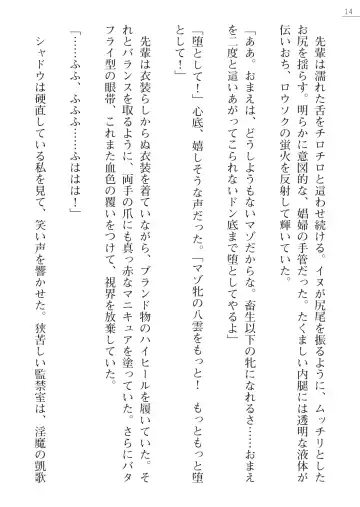 14
　先輩は濡れた舌をチロチロと這わせ続ける。イヌが尻尾を振るように、ムッチリとした
お尻を揺らす。明らかに意図的な、娼婦の手管だった。たくましい内腿には透明な液体が
伝いおち、ロウソクの蛍火を反射して輝いていた。
「ああ。おまえは、どうしようもないマゾだからな。畜生以下の牝になれるさ……おまえ
を二度と這いあがってこられないドン底まで堕としてやるよ」
「堕として！」心底、嬉しそうな声だった。「マゾ牝の八雲をもっと！　もっともっと堕
として！」
　先輩は衣装らしからぬ衣装を着ていながら、ブランド物のハイヒールを履いていた。そ
れとバランスを取るように、両手の爪にも真っ赤なマニキュアを塗っていた。さらにバタ
フライ型の眼帯、これまた血色の覆いをつけて、視界を放棄していた。
「……ふふ、ふふふ……ふははは！」
　シャドウは硬直している私を見て、笑い声を響かせた。狭苦しい監禁室は、淫魔の凱歌